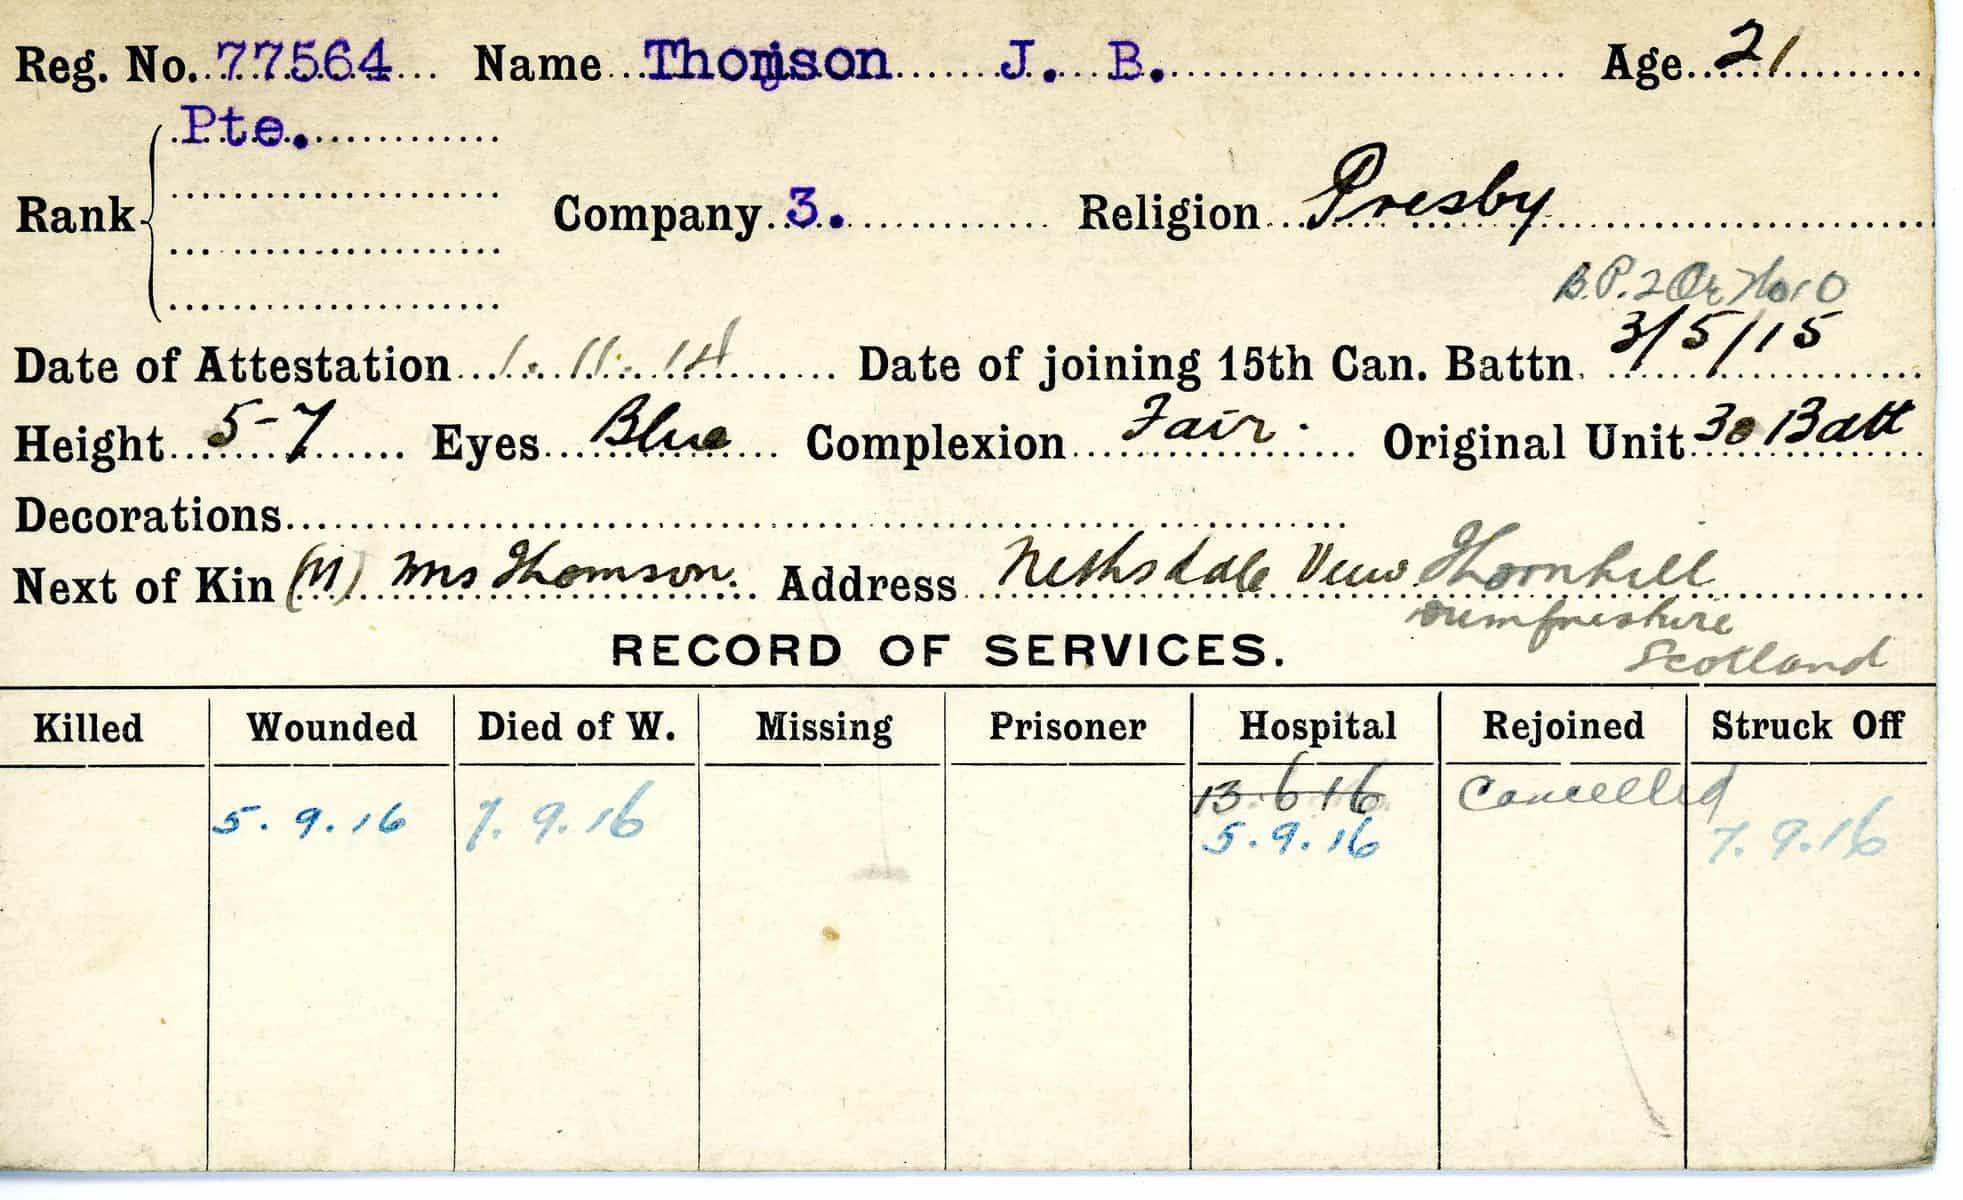 Reg. No. 77564 Name Thomson J. B. Age 21
Pte.
Rank Company 3. Religion Presby
B.P. 2
Date of Attestation 1.11.14 Date of joining 15th Can. Battn. 3/5/15
Height 5-7 Eyes Blue Complexion Fair. Original Unit 30 Batt
Decorations
Next of Kin (M) Mrs Thomson. Address Nithsdale View Thornhill
Dumfrieshire
Scotland
RECORD OF SERVICES.
Killed Wounded Died of W. Missing Prisoner Hospital Rejoined Struck Off
13.6.16 Cancelled
5.9.16 7.9.16 5.9.16 7.9.16